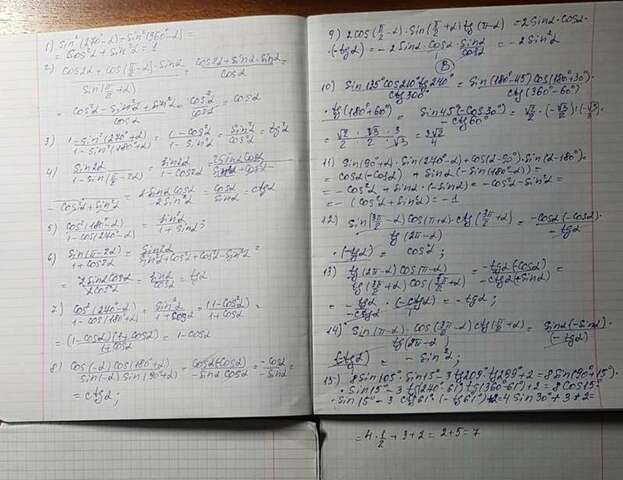 1) sin²(270°-α)+sin²(360°-α)=
= cos²α + sin²α = 1
2) cos2α + cos(π/2-α)·sinα / sin(π/2+α) = cos2α + sinα·sinα / cosα =
= cos²α - sin²α + sin²α / cosα = cos²α / cosα = cosα
3) 1-sin²(270°+α) / 1-sin²(180°+α) = 1-cos²α / 1-sin²α = sin²α / cos²α = tg²α
4) sin2α / 1-sin(π/2-2α) = sin2α / 1-cos2α =
-cos²α+sin²α = 2sinα cosα / 2sin²α = cosα / sinα = ctgα
5) cos²(180°-α) / 1-cos(270°-α) = sin²α / 1+sinα ;
6) sin(π-2α) / 1+cos2α = sin2α / sin²α+cos²α+cos²α-sin²α =
= 2sinα cosα / 2cos²α = sinα / cosα = tgα
7) cos²(270°-α) / 1-cos(180°+α) = sin²α / 1+cosα = (1-cos²α) / 1+cosα =
= (1-cosα)(1+cosα) / 1+cosα = 1-cosα
8) cos(-α) cos(180°+α) / sin(-α) sin(90°+α) = cosα(-cosα) / -sinα cosα = -cosα / -sinα =
= ctgα ;
9) 2cos(π/2-α)·sin(π/2+α) tg(π-α) = 2sinα·cosα·
·(-tgα) = -2sinα·cosα/1·sinα/cosα = -2sin²α
(B)
10) sin135°cos210°tg240° / ctg300° = sin(180°-45°)cos(180°+30°)·
·tg(180°+60°) / ctg(360°-60°) = sin45°·(-cos30°) / -ctg60° = √2/2·(-√3/2):(-√3/3)
= √2/2·√3/2·3/√3 = 3√2/4
11) sin(90°+α)·sin(270°-α)+cos(α-90°)·sin(α-180°)=
= cosα(-cosα) + sinα(-sin(180°-α)) =
= -cos²α + sinα·(-sinα) = -cos²α-sin²α =
= -(cos²α+sin²α) = -1
12) sin(3π/2-α)cos(π+α)·ctg(3π/2+α) / tg(2π-α) = -cosα(-cosα)· / -tgα
·(-tgα) = cos²α ;
13) tg(2π-α)cos(π-α) / tg(3π/2+α)cos(3π/2+α) = -tgα(-cosα) / -ctgα(+sinα) =
14) sin(π-α)·cos(3π/2-α)ctg(π/2+α) / tg(2π-α) = sinα(-sinα)· / (-tgα)
(-tgα) = -sin²α ;
15) 8sin105°·sin15°-3tg209°tg299°+2 = 8sin(90°+15°)·
·sin15°-3tg(270°-61°)tg(360°-61°)+2 = 8cos15°·
·sin15°-3ctg61°(-tg61°)+2=4sin30°+3+2=
= 4·1/2+3+2 = 2+5 = 7